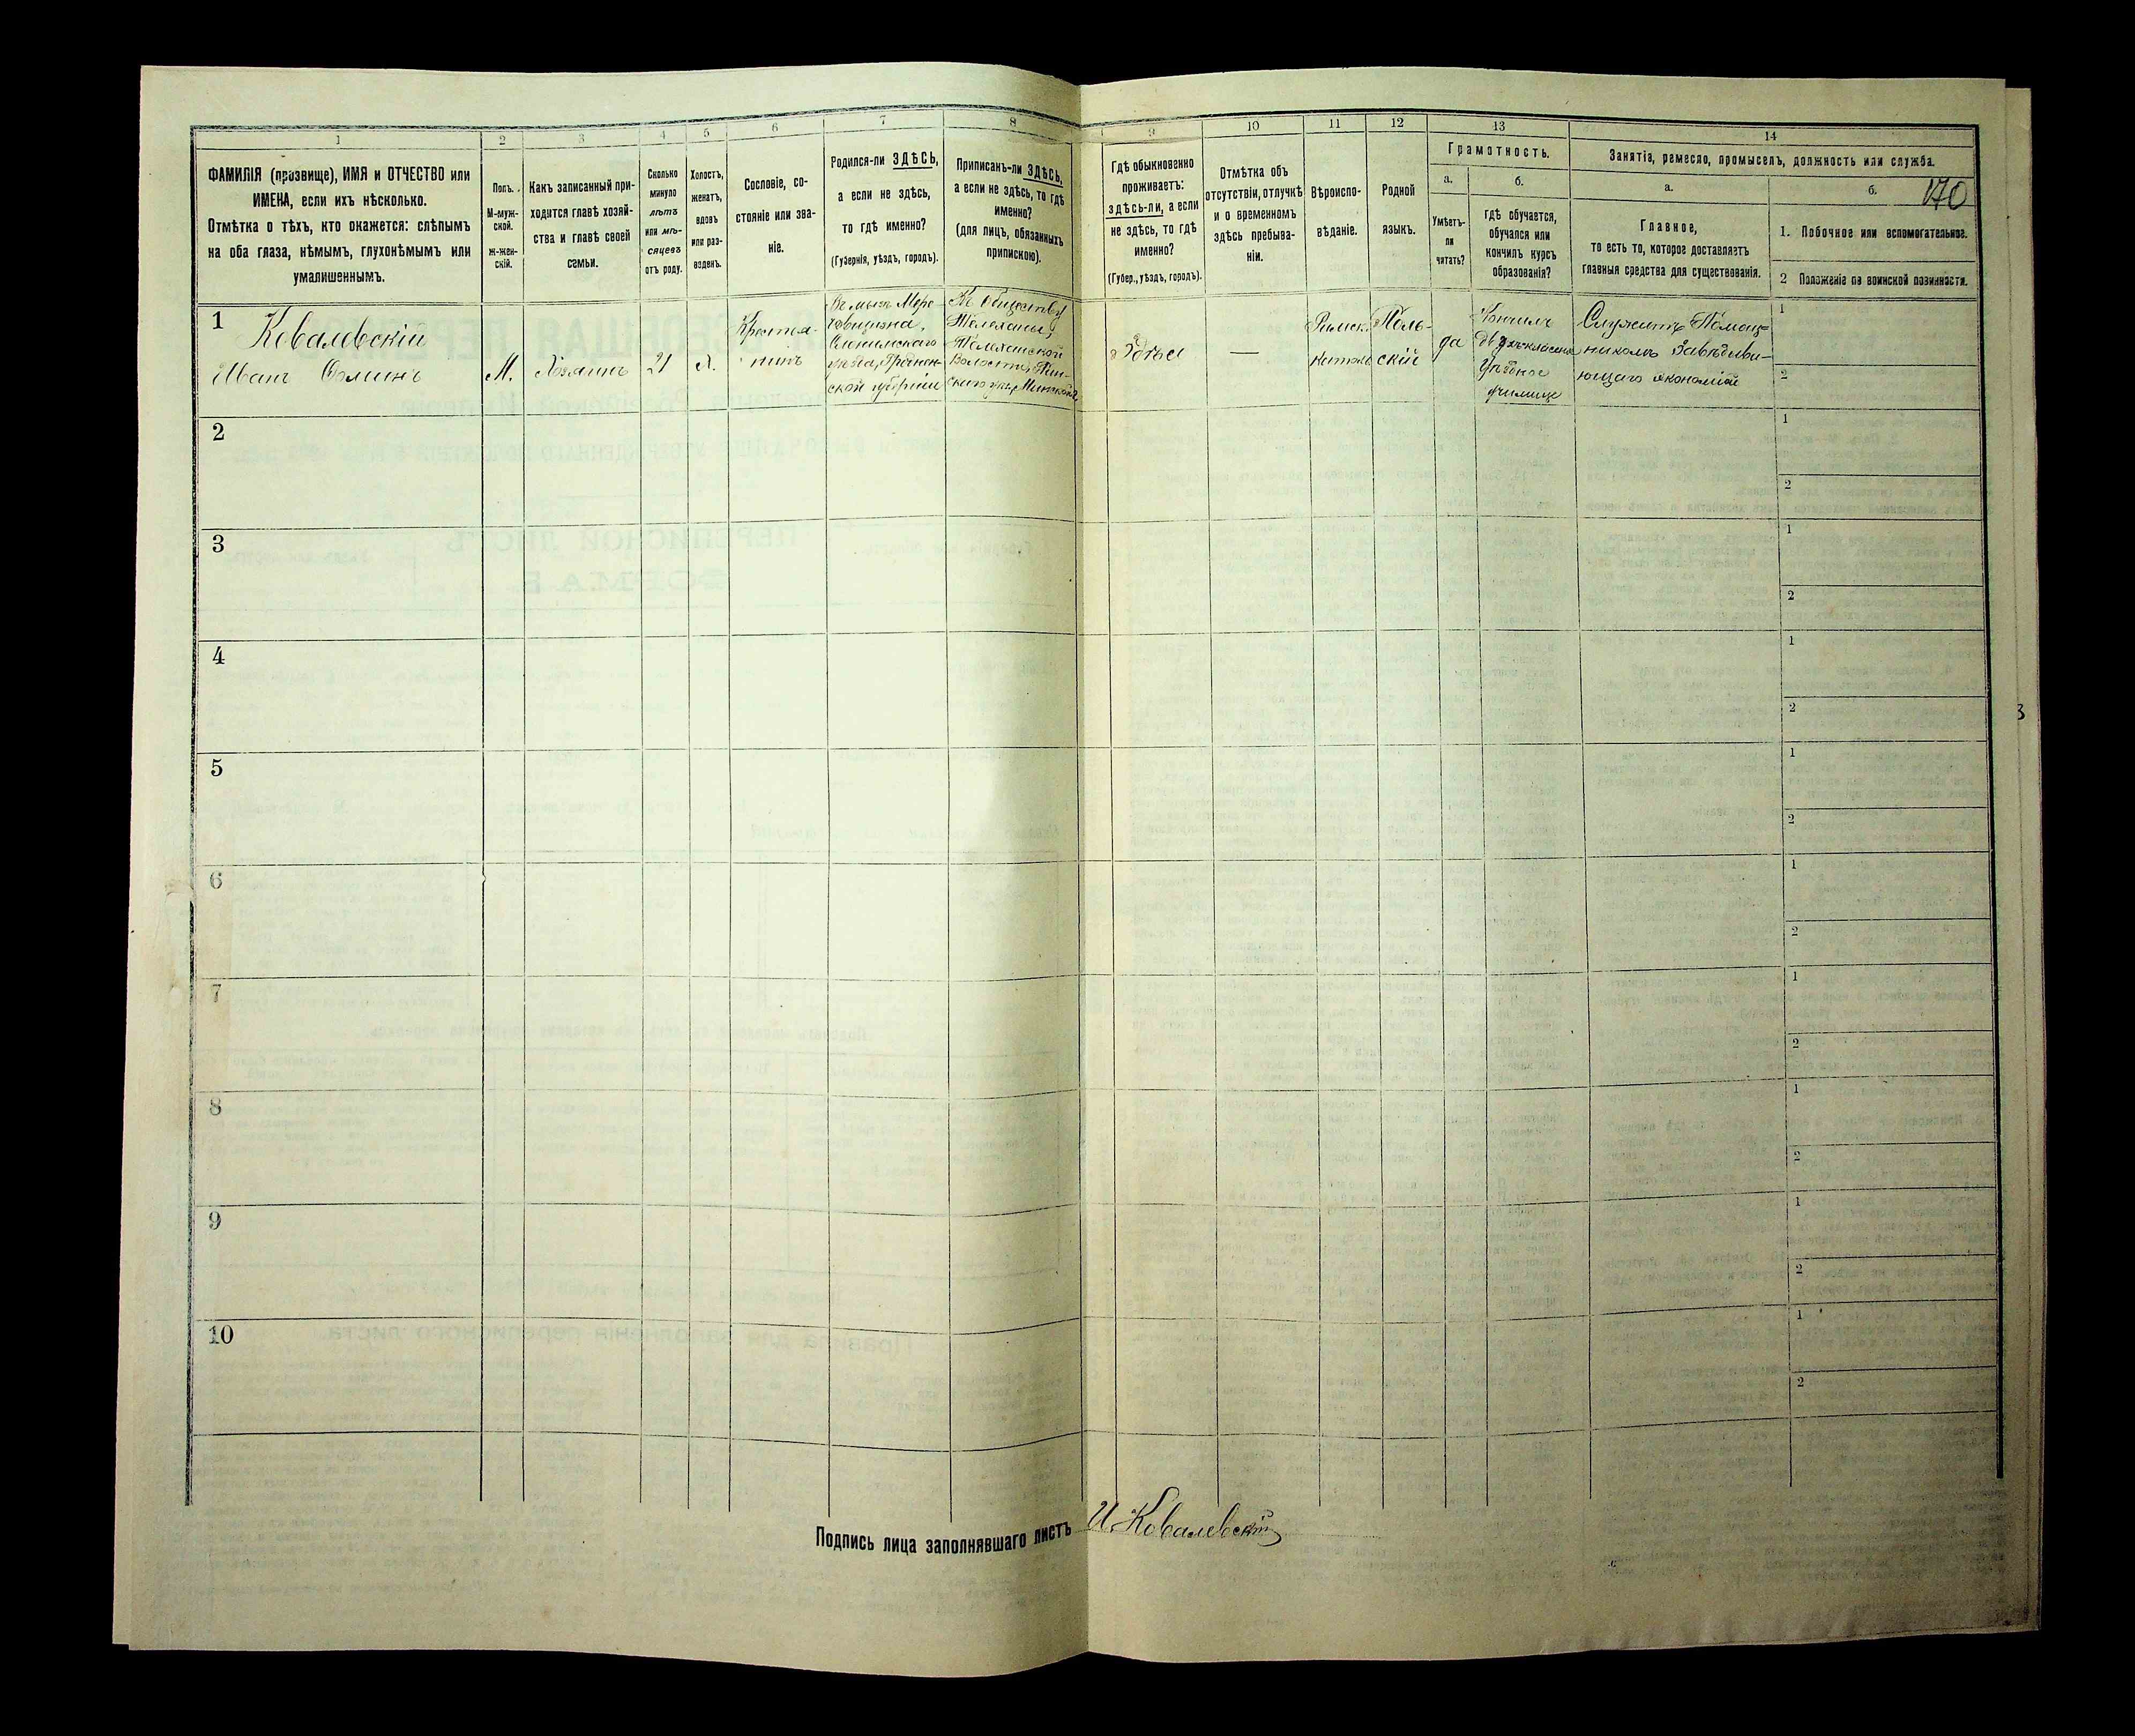 1 2 3 4 5 6 7 8 9 10 11 12 13 14
ФАМИЛІЯ (прозвище), ИМЯ и ОТЧЕСТВО или
ИМЕНА, если ихъ нѣсколько.
Отмѣтка о тѣхъ, кто окажется: слѣпымъ
на оба глаза, нѣмымъ, глухонѣмымъ или
умалишеннымъ.
Полъ.
М-муж-
ской.
ж-жен-
скій.
Какъ записанный при-
ходится главѣ хозяй-
ства и главѣ своей
семьи.
Сколько
минуло
лѣтъ
или мѣ-
сяцевъ
отъ роду.
Холостъ,
женатъ,
вдовъ
или раз-
веденъ.
Сословіе, со-
стояніе или зва-
ніе.
Родился-ли ЗДѢСЬ,
а если не здѣсь,
то гдѣ именно?
(Губернія, уѣздъ, городъ).
Приписанъ-ли ЗДѢСЬ,
а если не здѣсь, то гдѣ
именно?
(для лицъ, обязанныхъ
припискою).
Гдѣ обыкновенно
проживаетъ:
здѣсь-ли, а если
не здѣсь, то гдѣ
именно?
(Губер., уѣздъ, городъ).
Отмѣтка объ
отсутствіи, отлучкѣ
и о временномъ
здѣсь пребыва-
ніи.
Вѣроиспо-
вѣданіе.
Родной
языкъ.
Грамотность.
а.
Умѣетъ-
ли
читать?
б.
гдѣ обучается,
обучался или
кончилъ курсъ
образованія?
Занятіе, ремесло, промыселъ, должность или служба.
а.
Главное,
то есть то, которое доставляетъ
главныя средства для существованія.
б.
170
1. Побочное или вспомогательное.
2 Положеніе по воинской повинности.
1
Ковалевскій
Иванъ Ѳоминъ
М.
Хозяинъ
21
х.
Крестья-
нинъ
Слонимскаго
уѣзда, Гроднен-
ской губерніи
Къ обществу
Телеханы,
Телеханской
Волости, Пин-
скаго
здѣсь
—
Римск.
католи
Поль-
скій
да
Кончилъ
Двухъклассное
училище
Служитъ Помощ-
никомъ Завѣдыва-
ющаго экономіей
1
2
2
1
2
3
1
2
4
1
2
5
1
2
6
1
2
7
1
2
8
1
2
9
1
2
10
1
2
Подпись лица заполнявшаго листъ И. Ковалевскій